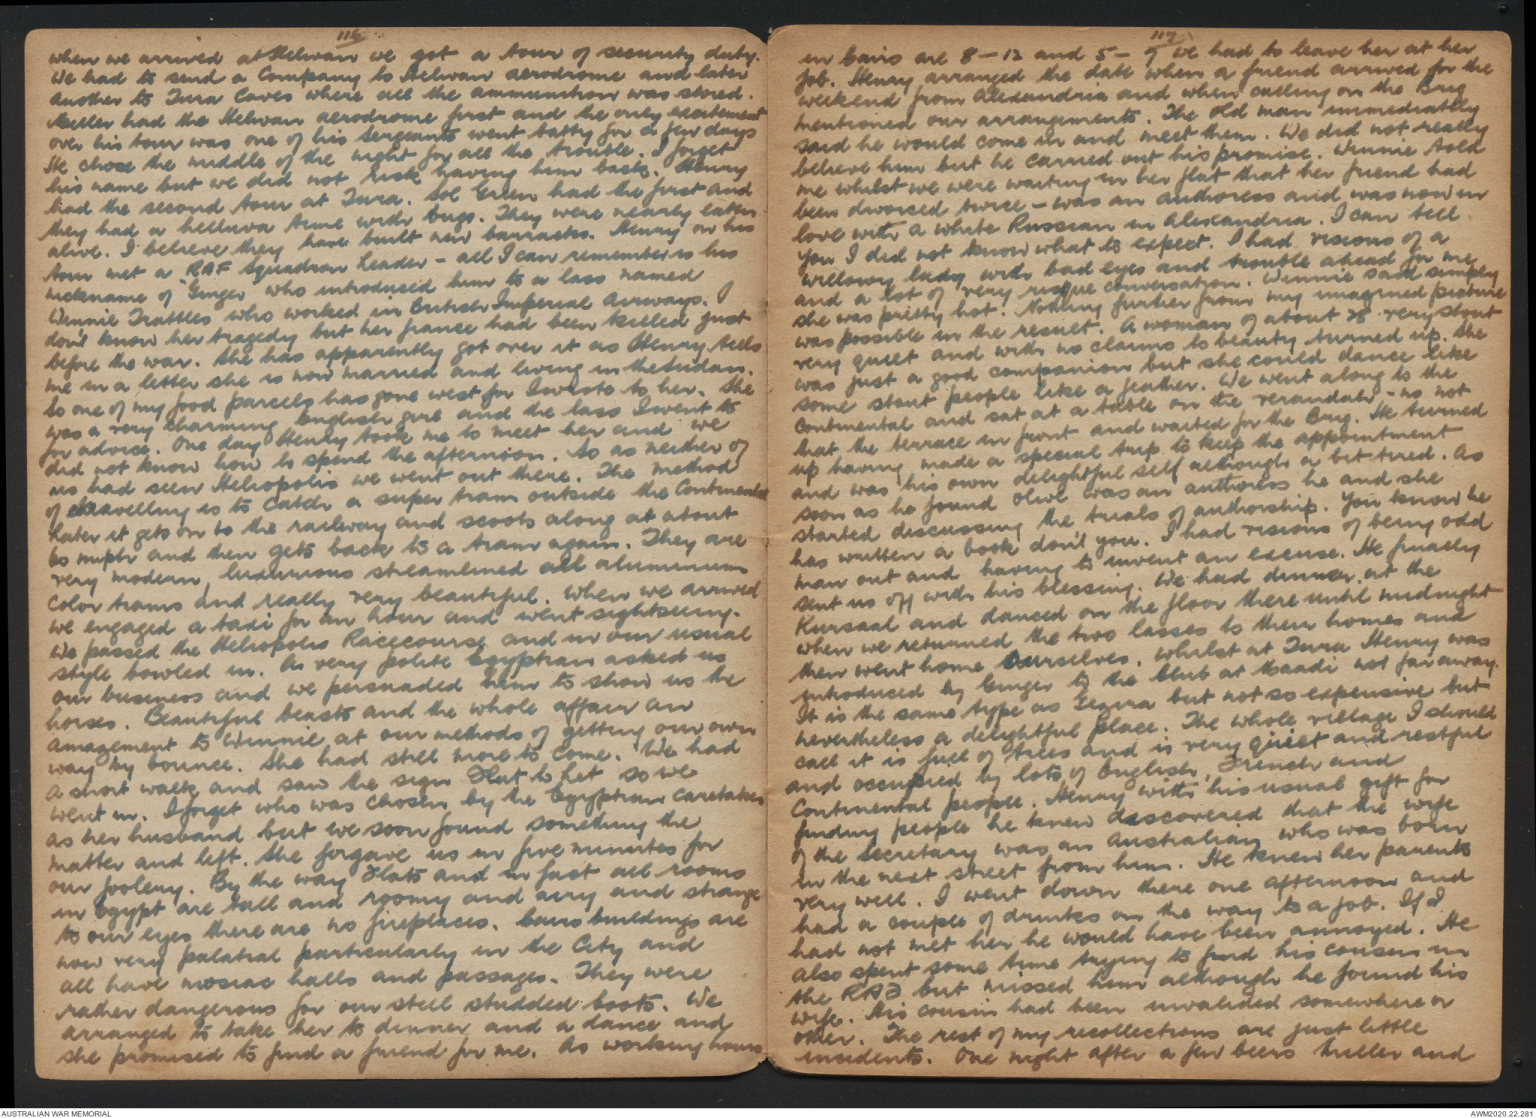 116
when we arrived at Helwan we got a tour of security duty.
We had to send a Company to Helwan aerodrome and later
another to Tura Caves where all the ammunition was stored.
had the Helwan aerodrome first and the only excitement
over his tour was one of his Sergeants went batty for a few days
He chose the middle of the night for all the trouble. I forget
his name but we did not risk having him back. Henry
had the second tour at Tura. Sol Green had the first and
they had a helluva time with bugs. They were nearly eaten
alive. I believe they have built new barracks. Henry on his
tour met a RAF Squadron Leader - all I can remember is his
nickname of "Ginger" who introduced him to a lass named
Winnie Trattles who worked in British Imperial Airways. I
don't know her tragedy but her fiance had been killed just
before the war. She has apparently got over it as Henry tells
me in a letter she is now married and living in the Sudan.
So one of my food parcels has gone west for I wrote to her. She
was a very charming English girl and the lass I went to
for advice. One day Henry took me to meet her and we
did not know how to spend the afternoon. So as neither of
us had seen Heliopolis we went out there. The method
of travelling is to catch a super tram outside the Continental
Later it gets on to the railway and scoots along at about
60 mph and then gets back to a tram again. They are
very modern, luxurious streamlined all aluminium
color trams and really very beautiful. When we arrived
we engaged a taxi for an hour and went sightseeing.
We passed the Heliopolis Racecourse and in our usual
style bowled in. A very polite Egyptian asked us
our business and we persuaded him to show us the
horses. Beautiful beasts and the whole affair an
amazement to Winnie at our methods of getting our own
way by bounce. She had still more to come. We had
a short walk and saw the sign Flat to Let so we
went in. I forget who was chosen by the Egyptian caretaker
as her husband but we soon found something the
matter and left. She forgave us in five minutes for
our foolery. By the way Flats and in fact all rooms
in Egypt are tall and roomy and airy and strange
to our eyes there are no fireplaces. Cairo buildings are
now very palatial particularly in the City and
all have mosiac halls and passages. They were
rather dangerous for our steel studded boots. We
arranged to take her to dinner and a dance and
she promised to find a friend for me. As working hours
117
in Cairo are 8 - 12 and 5 - 7 we had to leave her at her
job. Henry arranged the date when a friend arrived for the
weekend from Alexandria and when calling on the Brig
mentioned our arrangements. The old man immediately
said he would come in and meet them. We did not really
believe him but he carried out his promise. Winnie told
me whilst we were waiting in her flat that her friend had
been divorced twice - was an authoress and was now in
love with a White Russian in Alexandria. I can tell
you I did not know what to expect. I had visions of a
willowy lady with bad eyes and trouble ahead for me
and a lot of very risque conversation. Winnie said simply
she was pretty hot. Nothing further from my imagined picture
was possible in the result. A woman of about 28 very stout
very quiet and with no claims to beauty turned up. She
was just a good companion but she could dance like
some stout people like a feather. We went along to the
Continental and sat at a table on the verandah - no not
that the terrace in front and waited for the Brig. He turned
up having made a special trip to keep the appointment
and was his own delightful self although a bit tired. As
soon as he found Olive was an authoress he and she
started discussing the trials of authorship. You know he
has written a book don't you. I had visions of being odd
man out and having to invent an excuse. He finally
sent us off with his blessing. We had dinner at the
Kursaal and danced on the floor there until midnight
when we returned the two lasses to their homes and
then went home ourselves. Whilst at Tura Henry was
introduced by Ginger to the Club at Maadi not far away.
It is the same type as Gezira but not so expensive but
nevertheless a delightful place. The whole village I should
call it is full of trees and is very quiet and restful
and occupied by lots of English, French and
Continental people. Henry with his usual gift for
finding people he knew discovered that the wife
of the Secretary was an Australian who was born
in the next street from him. He knew her parents
very well. I went down there one afternoon and
had a couple of drinks on the way to a job. If I
had not met her he would have been annoyed. He
also spent some time trying to find his cousin in
the RAF but missed him although he found his
wife. His cousin had been invalided somewhere or
other. The rest of my recollections are just little
incidents. One night after a few beers and
AUSTRALIAN WAR MEMORIAL
AWM2020.22.281